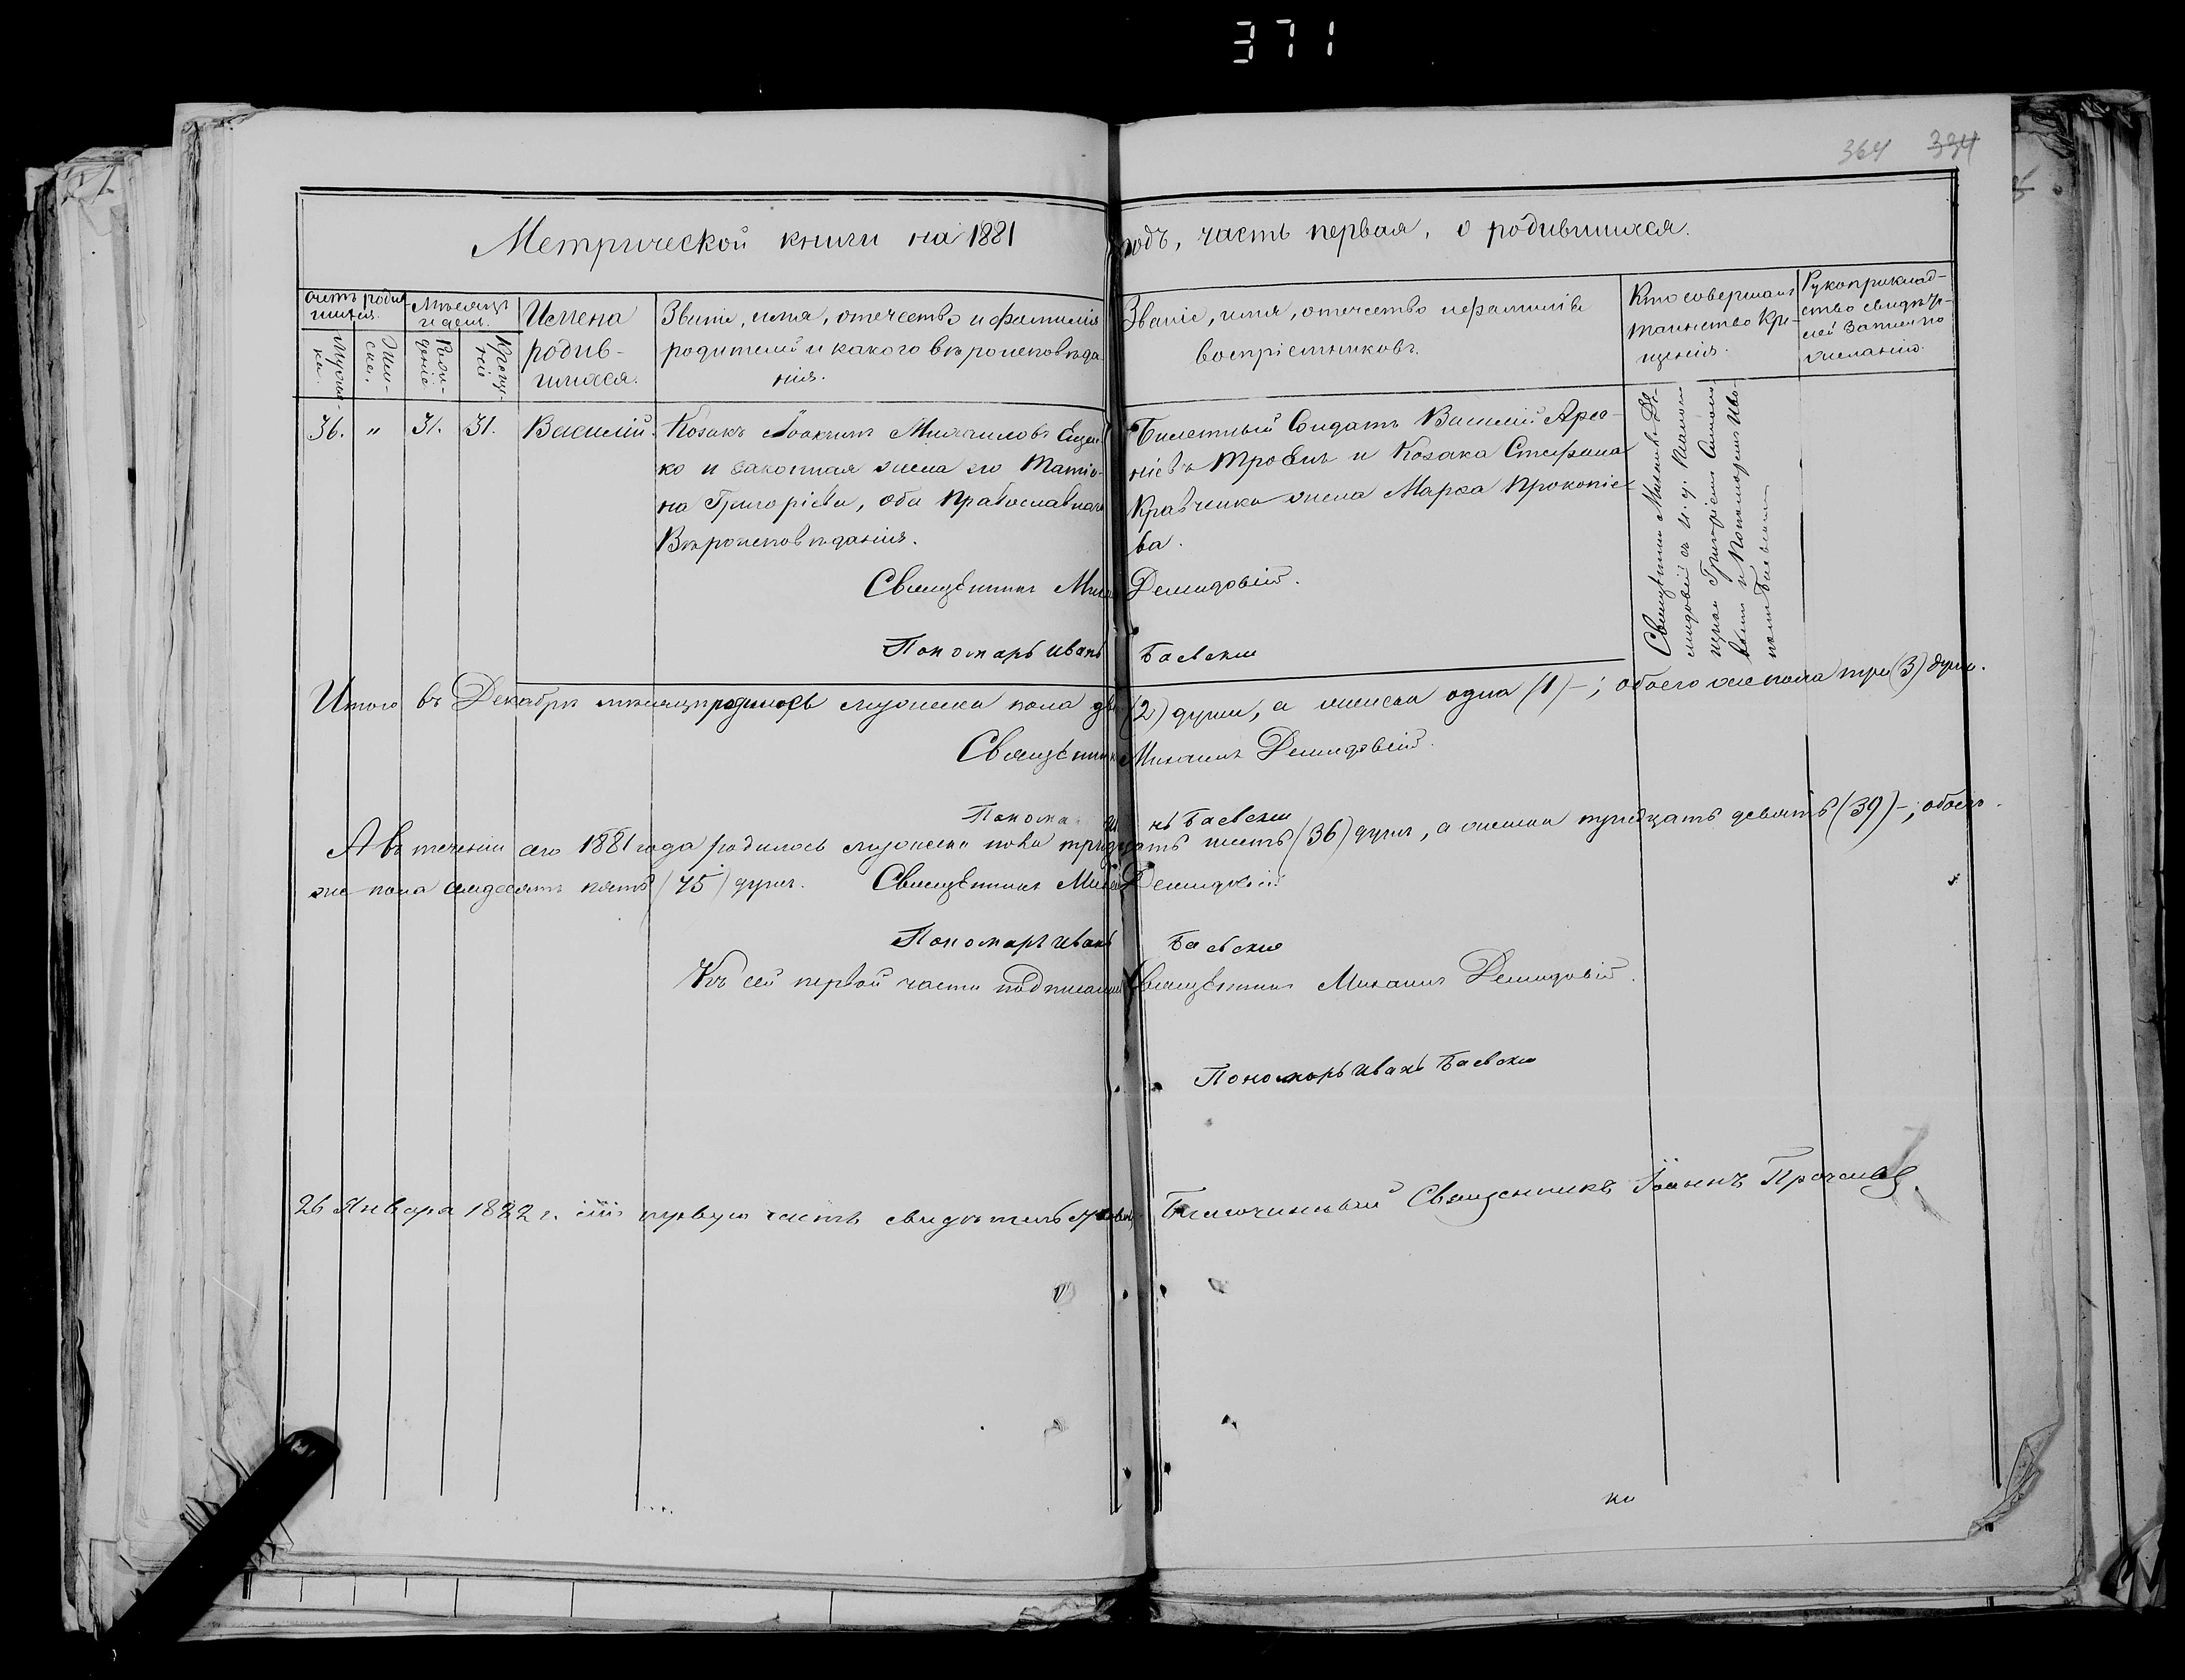 371
364 334
Метрической книги на 1881 годъ, часть первая, о родившихся.
Счетъ родившихся.
Мужеска.
Женска.
Мѣсяцъ и день.
Рожденіе
Крещеніе
Имена
родив-
шихся.
Званіе, имя, отечество и фамилія
родителей и какого вѣроисповѣда
нія.
Званіе, имя, отечество и фамилія
воспріемниковъ.
Кто совершалъ
таинство Кре-
щенія.
Рукоприклад-
ство свидѣте-
лей записи по
желанію.
36.
"
31.
31.
Василій.
Козакъ Іоакимъ Михаиловъ Ещен
ко и законная жена его Татія-
на Григоріева, оба Православнаго
Вѣроисповѣданія.
Билетный Солдатъ Василій Арсе-
ніевъ и Козака Стефана
Кравченка жена Марѳа Прокопіе-
ва.
Священникъ Михаилъ Де-
мидовій съ и. д. Псалом
щика Григоріемъ
и Пономаремъ Ива-
номъ Баевскимъ
Священникъ Миха Демидовій.
Пономарь Иванъ Баевскій
Итого въ Декабрѣ мѣсяцѣ родилось мужеска пола две (2) души, а женска одна (1) –; обоего же пола три (3) души.
Священникъ Михаилъ Демидовій.
Понома Ив нъ Баевскій
А въ теченіи сего 1881 года родилось мужеска пола тридцать шесть (36) душъ, а женска тридцать девять (39) –; обоего
же пола семдесять пять (75) душъ. Священникъ Михаи Демидовій
Пономарь Иванъ Баевскій
Къ сей первой части подписался Священникъ Михаилъ Демидовій.
Пономарь Иванъ Баевскій
26 Января 1882 г. сію первую часть свидѣтельствовалъ Благочинный Священникъ Іоаннъ